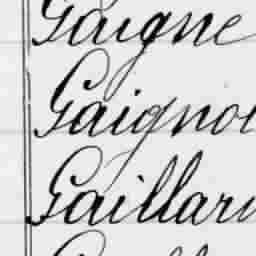 Gaigne
Gaigno
Gaillar